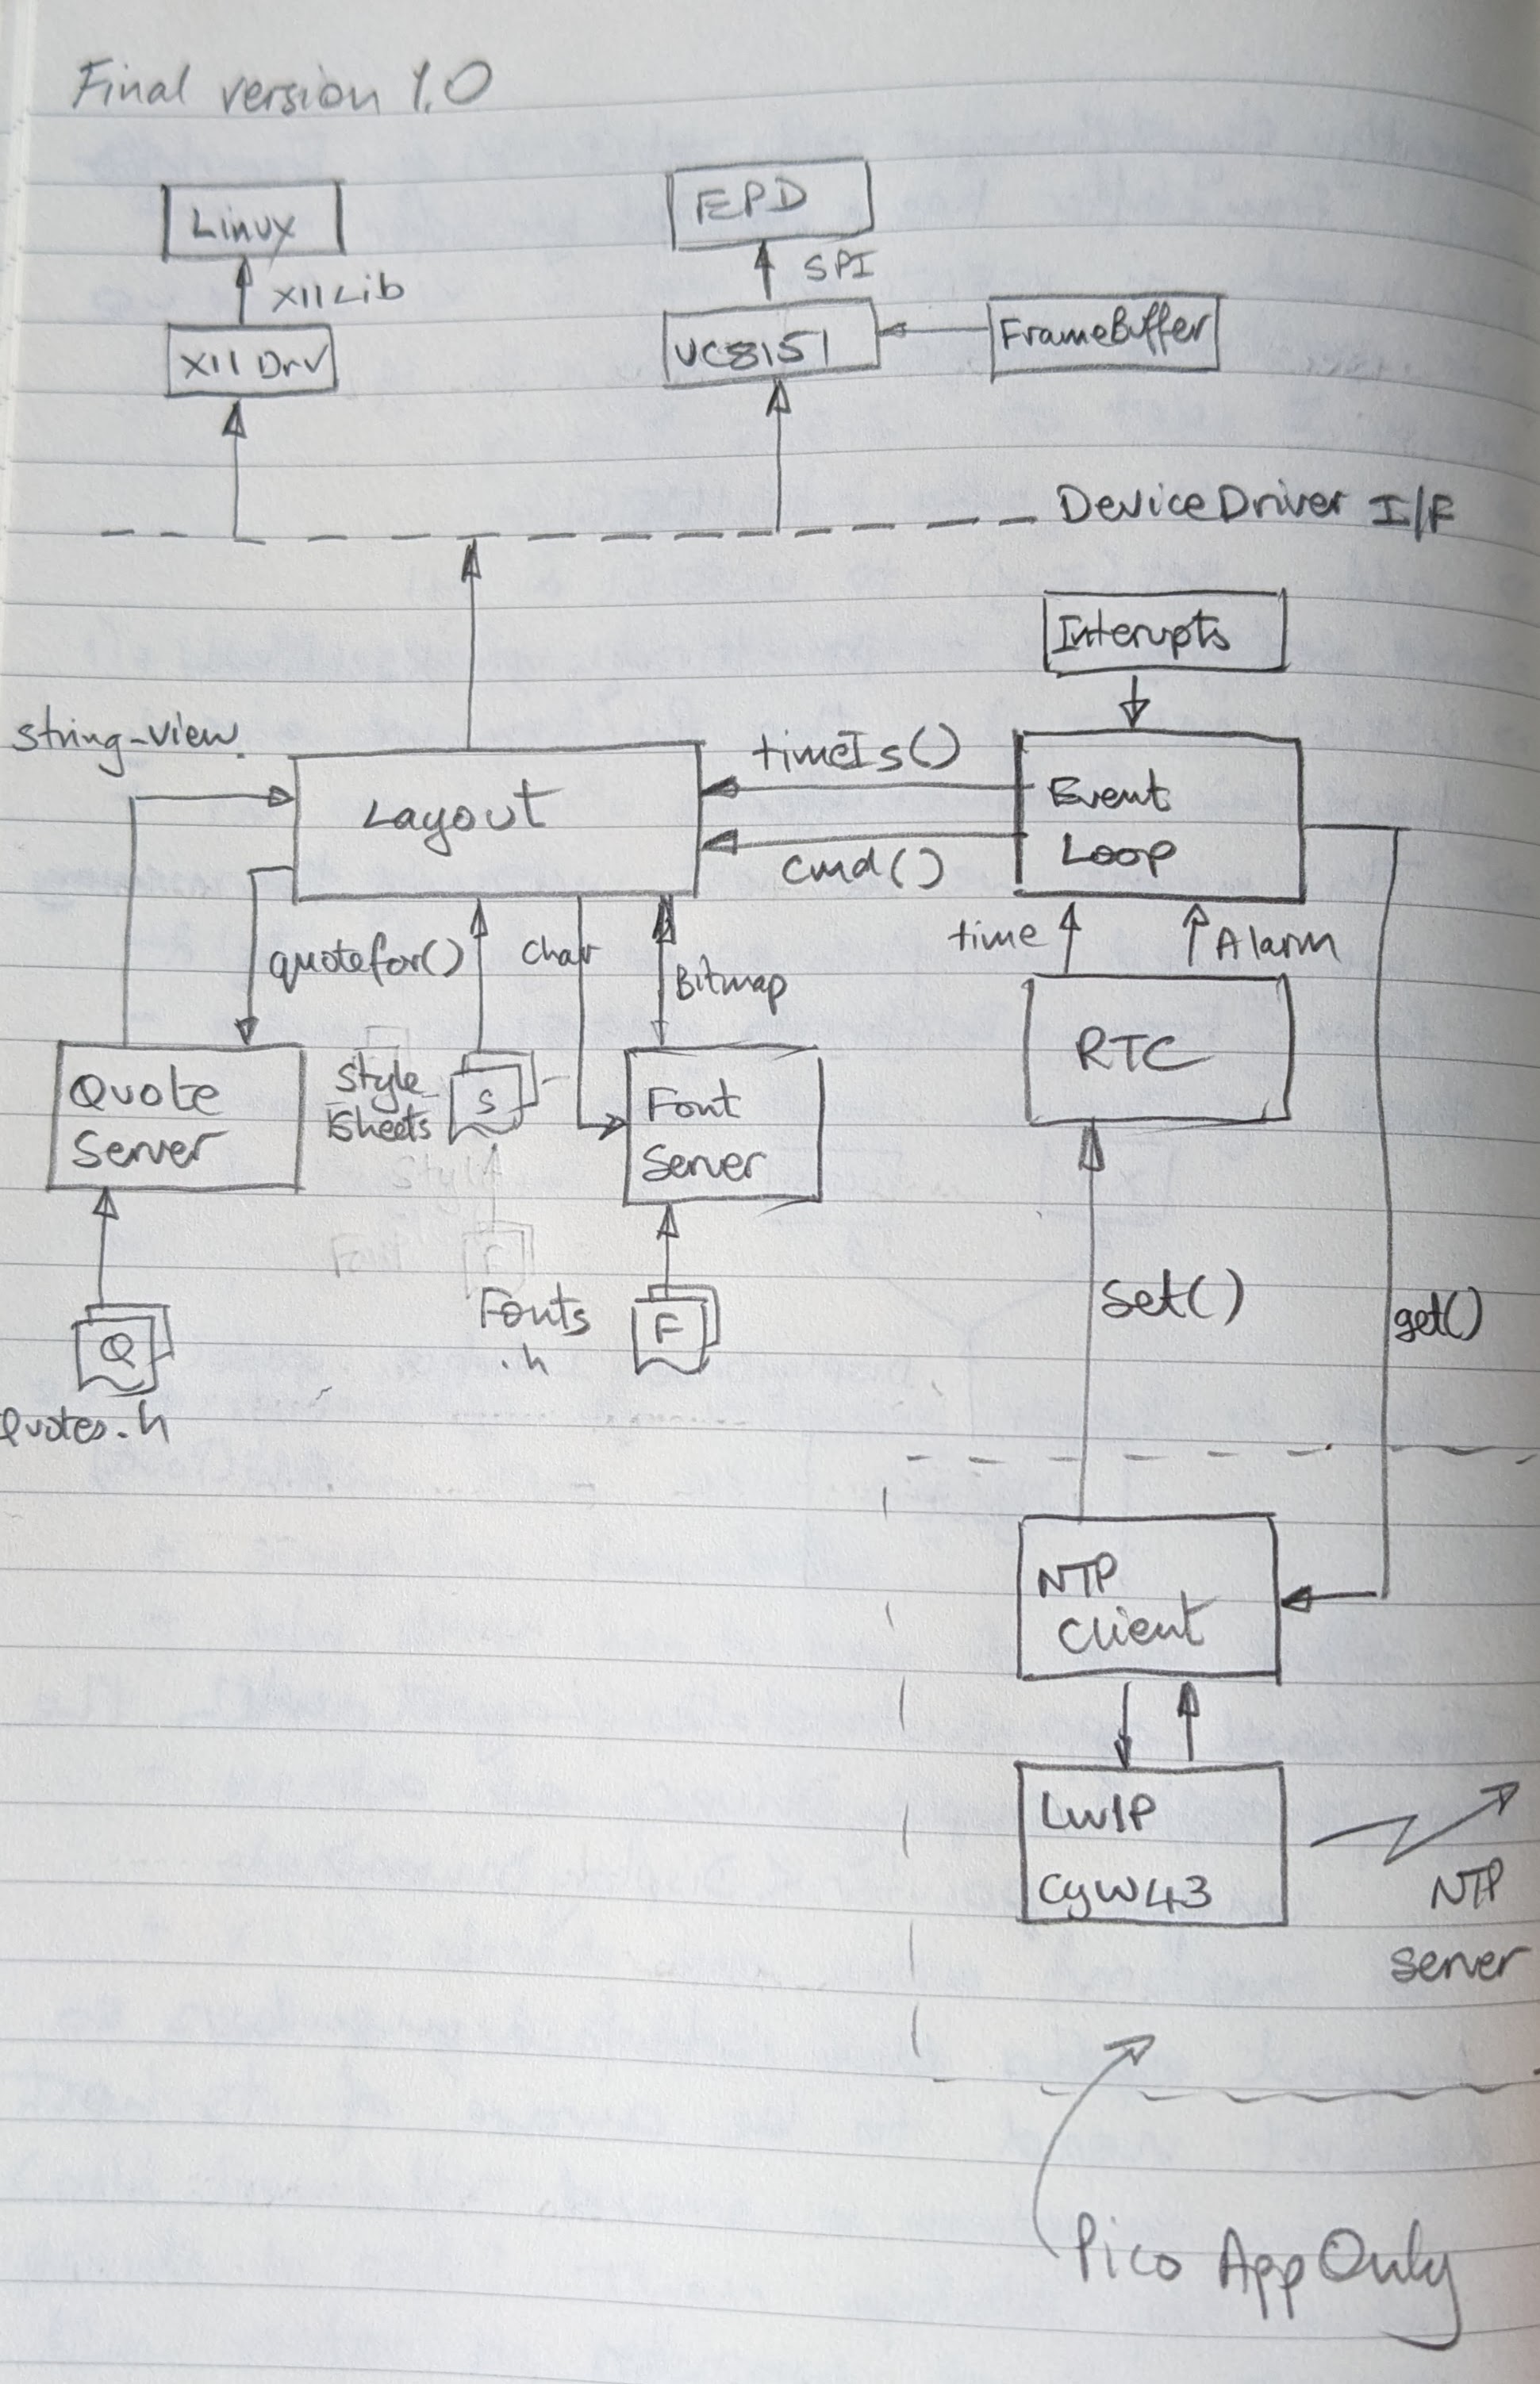 Final version 1.0
Linux
EPD
X11Lib
SPI
X11 Drv
UC8151
FrameBuffer
DeviceDriver I/F
Interupts
string-view.
timeIs()
Layout
Event
Loop
cmd()
quotefor()
char
Bitmap
time
Alarm
RTC
Quote
Server
Style
Sheets
S
Font
Server
Style
Font
F
set()
get()
Fonts
.h
F
Q
Quotes.h
NTP
Client
LwIP
CYW43
NTP
Server
Pico App Only